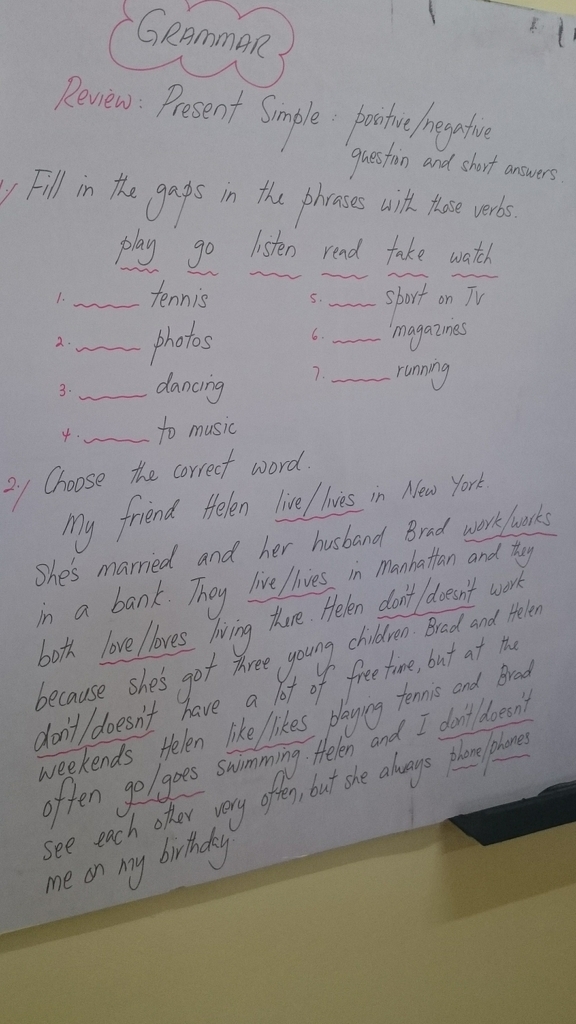 GRAMMAR
Review: Present Simple: positive/negative
question and short answers.
1./ Fill in the gaps in the phrases with those verbs.
play go listen read take watch
1. ______ tennis
2. ______ photos
3. ______ dancing
4. ______ to music
5. ______ sport on TV
6. ______ magazines
7. ______ running
2./ Choose the correct word.
My friend Helen live/lives in New York.
She's married and her husband Brad work/works
in a bank. They live/lives in Manhattan and they
both love/loves living there. Helen don't/doesn't work
because she's got three young children. Brad and Helen
don't/doesn't have a lot of free time, but at the
weekends Helen like/likes playing tennis and Brad
often go/goes swimming. Helen and I don't/doesn't
see each other very often, but she always phone/phones
me on my birthday.